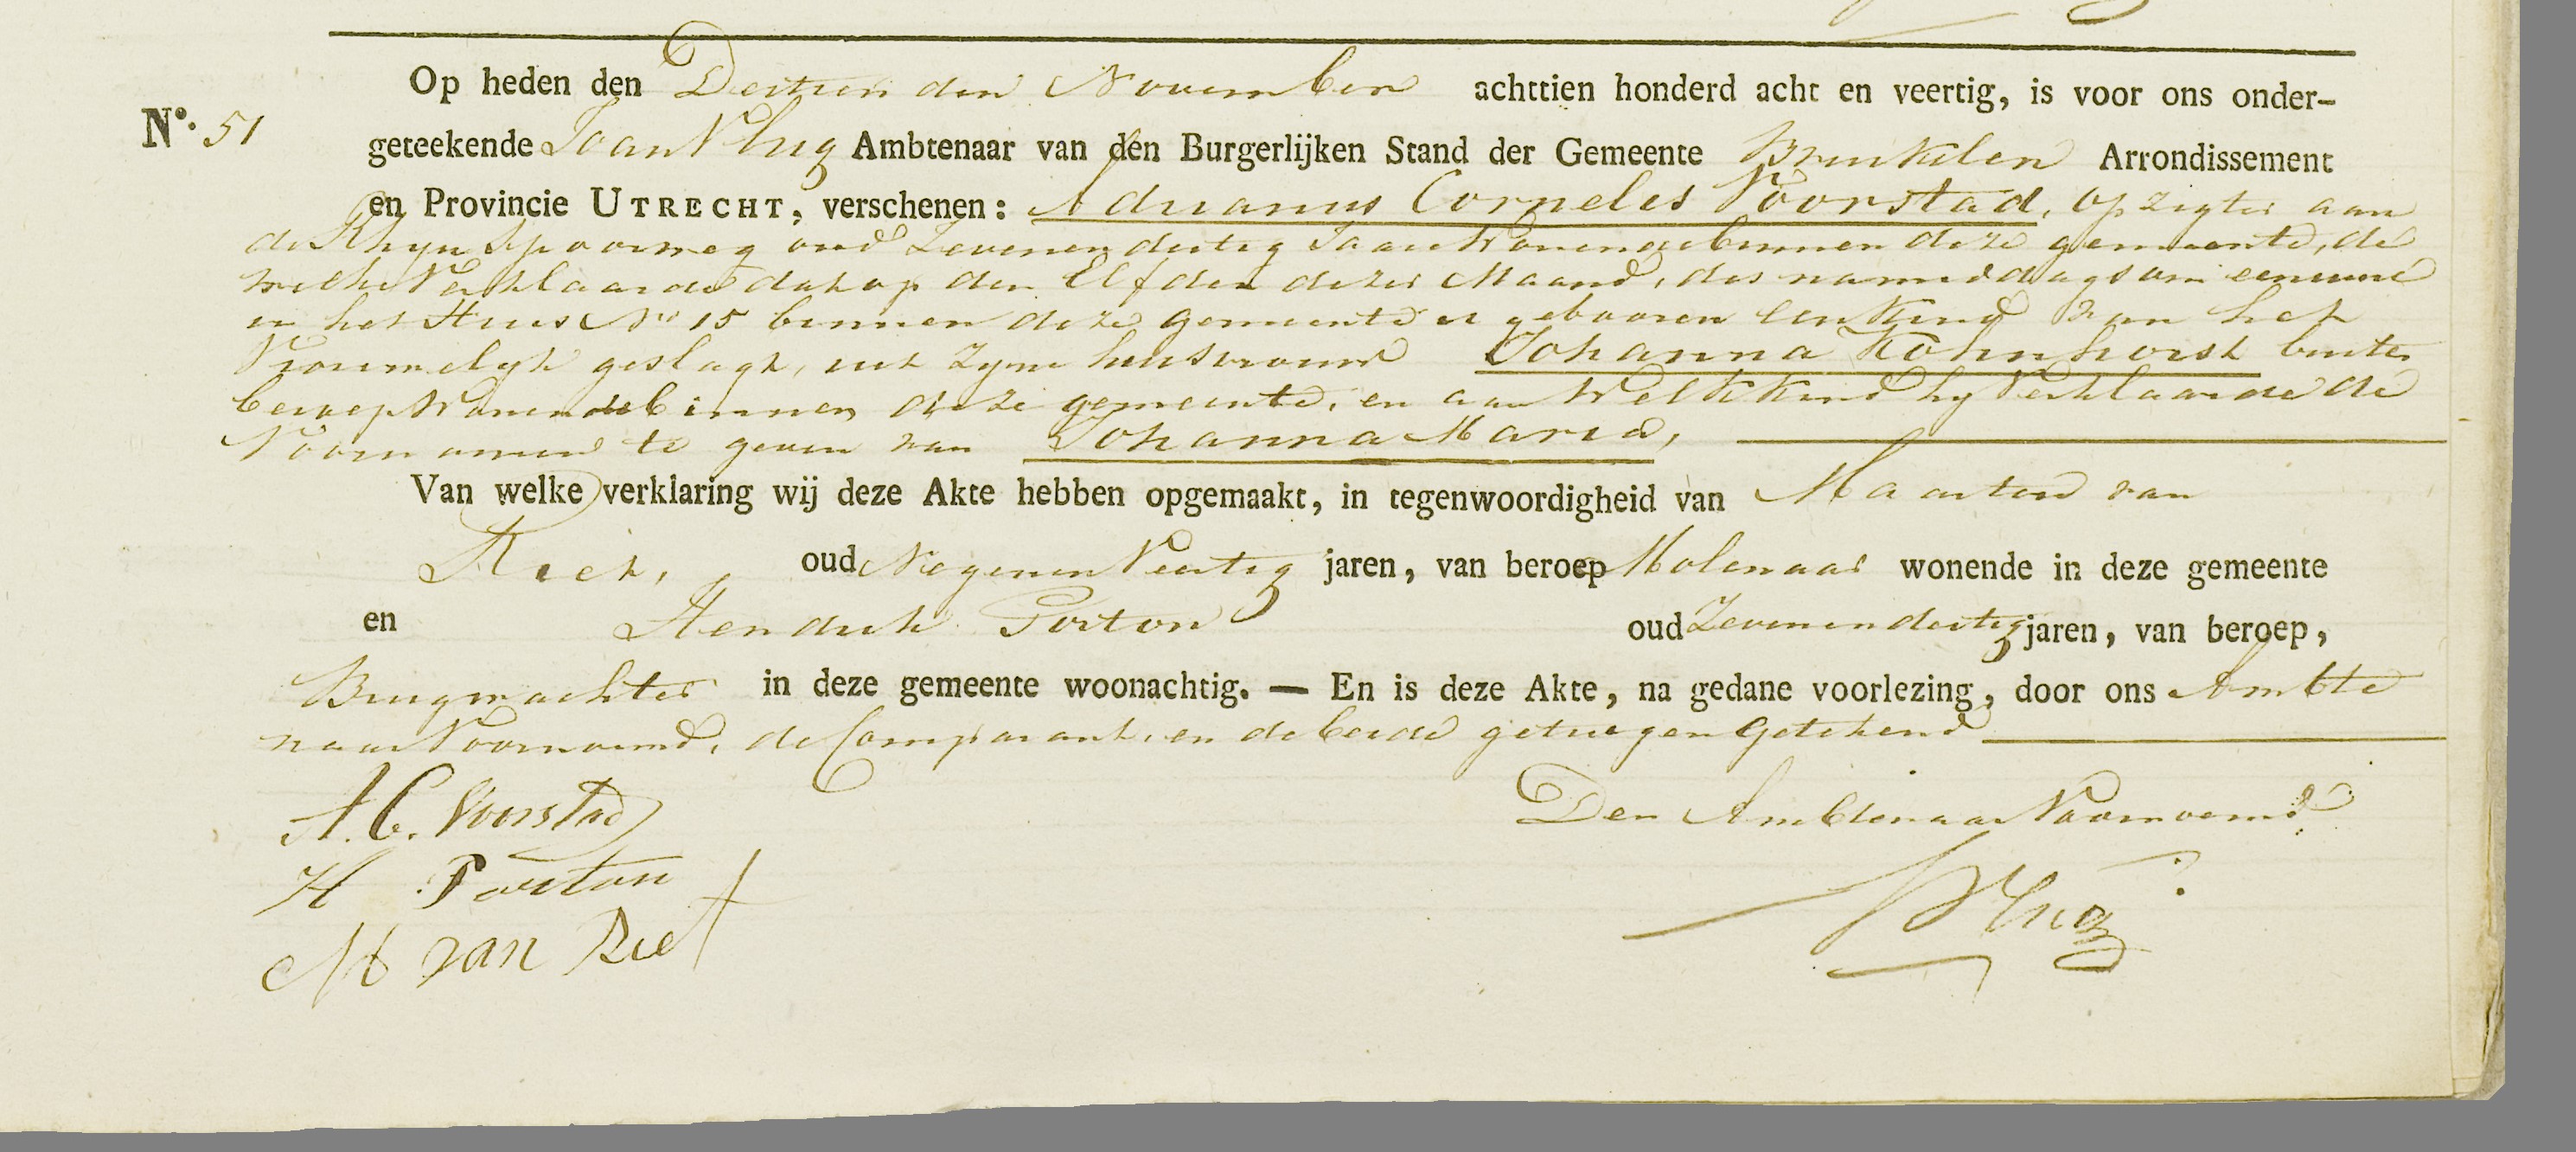 Op heden den Dertien den November achttien honderd acht en veertig, is voor ons onder-
No. 51
geteekende Joan Vlug Ambtenaar van den Burgerlijken Stand der Gemeente Breukelen Arrondissement
en Provincie UTRECHT, verschenen: Adrianus Cornelis Voorstad, opzigter aan
de Rhyn Spoorweg oud Zevenen dertig Jaar Wonende binnen deze gemeente, de
welke Verklaarde dat op den Elfden dezer Maand, des namiddags om eenuure
in het Huis No 15 binnen deze gemeente is gebooren een Kind van het
Vrouwelyk geslagt, uit zyne huisvrouw Johanna Kohnhorst buiten
beroep Wonende binnen deze gemeente, en aan Welk Kind hy Verklaarde de
Voornamen te geven van Johanna Maria,
Van welke verklaring wij deze Akte hebben opgemaakt, in tegenwoordigheid van Maarten van
Riet, oud Negenen Veertig jaren, van beroep Molenaar wonende in deze gemeente
en Hendrik Porton oud Zevenen dertig jaren, van beroep,
Brugwachter in deze gemeente woonachtig. — En is deze Akte, na gedane voorlezing, door ons Ambte
naar Voornoemd, de Comparant, en de beide getuigen getekend
A. C. Voorstad
Den Ambtenaar Voornoemd
H Porton
Vlug
M van Riet